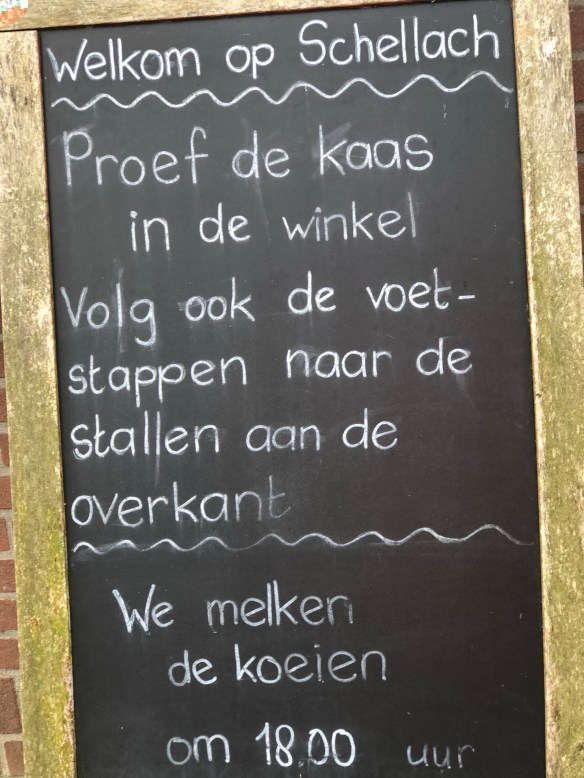 Welkom op Schellach
Proef de kaas
in de winkel
Volg ook de voet-
stappen naar de
stallen aan de
overkant
We melken
de koeien
om 18.00 uur